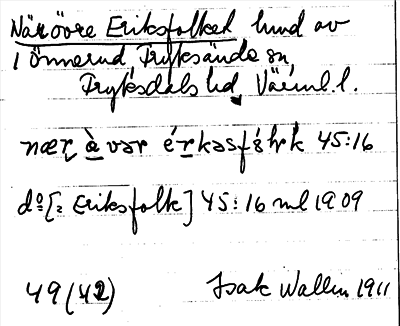 När övre Eriksfolket hund av
i Önnerud, Fryksände sn,
Fryksdals hd, Värml. l.
nær à vər é rkəsfɵ́lrk 45:16
do [: Eriksfolk] 45:16 ml 1909
49 (42) Isak Wallin 1911